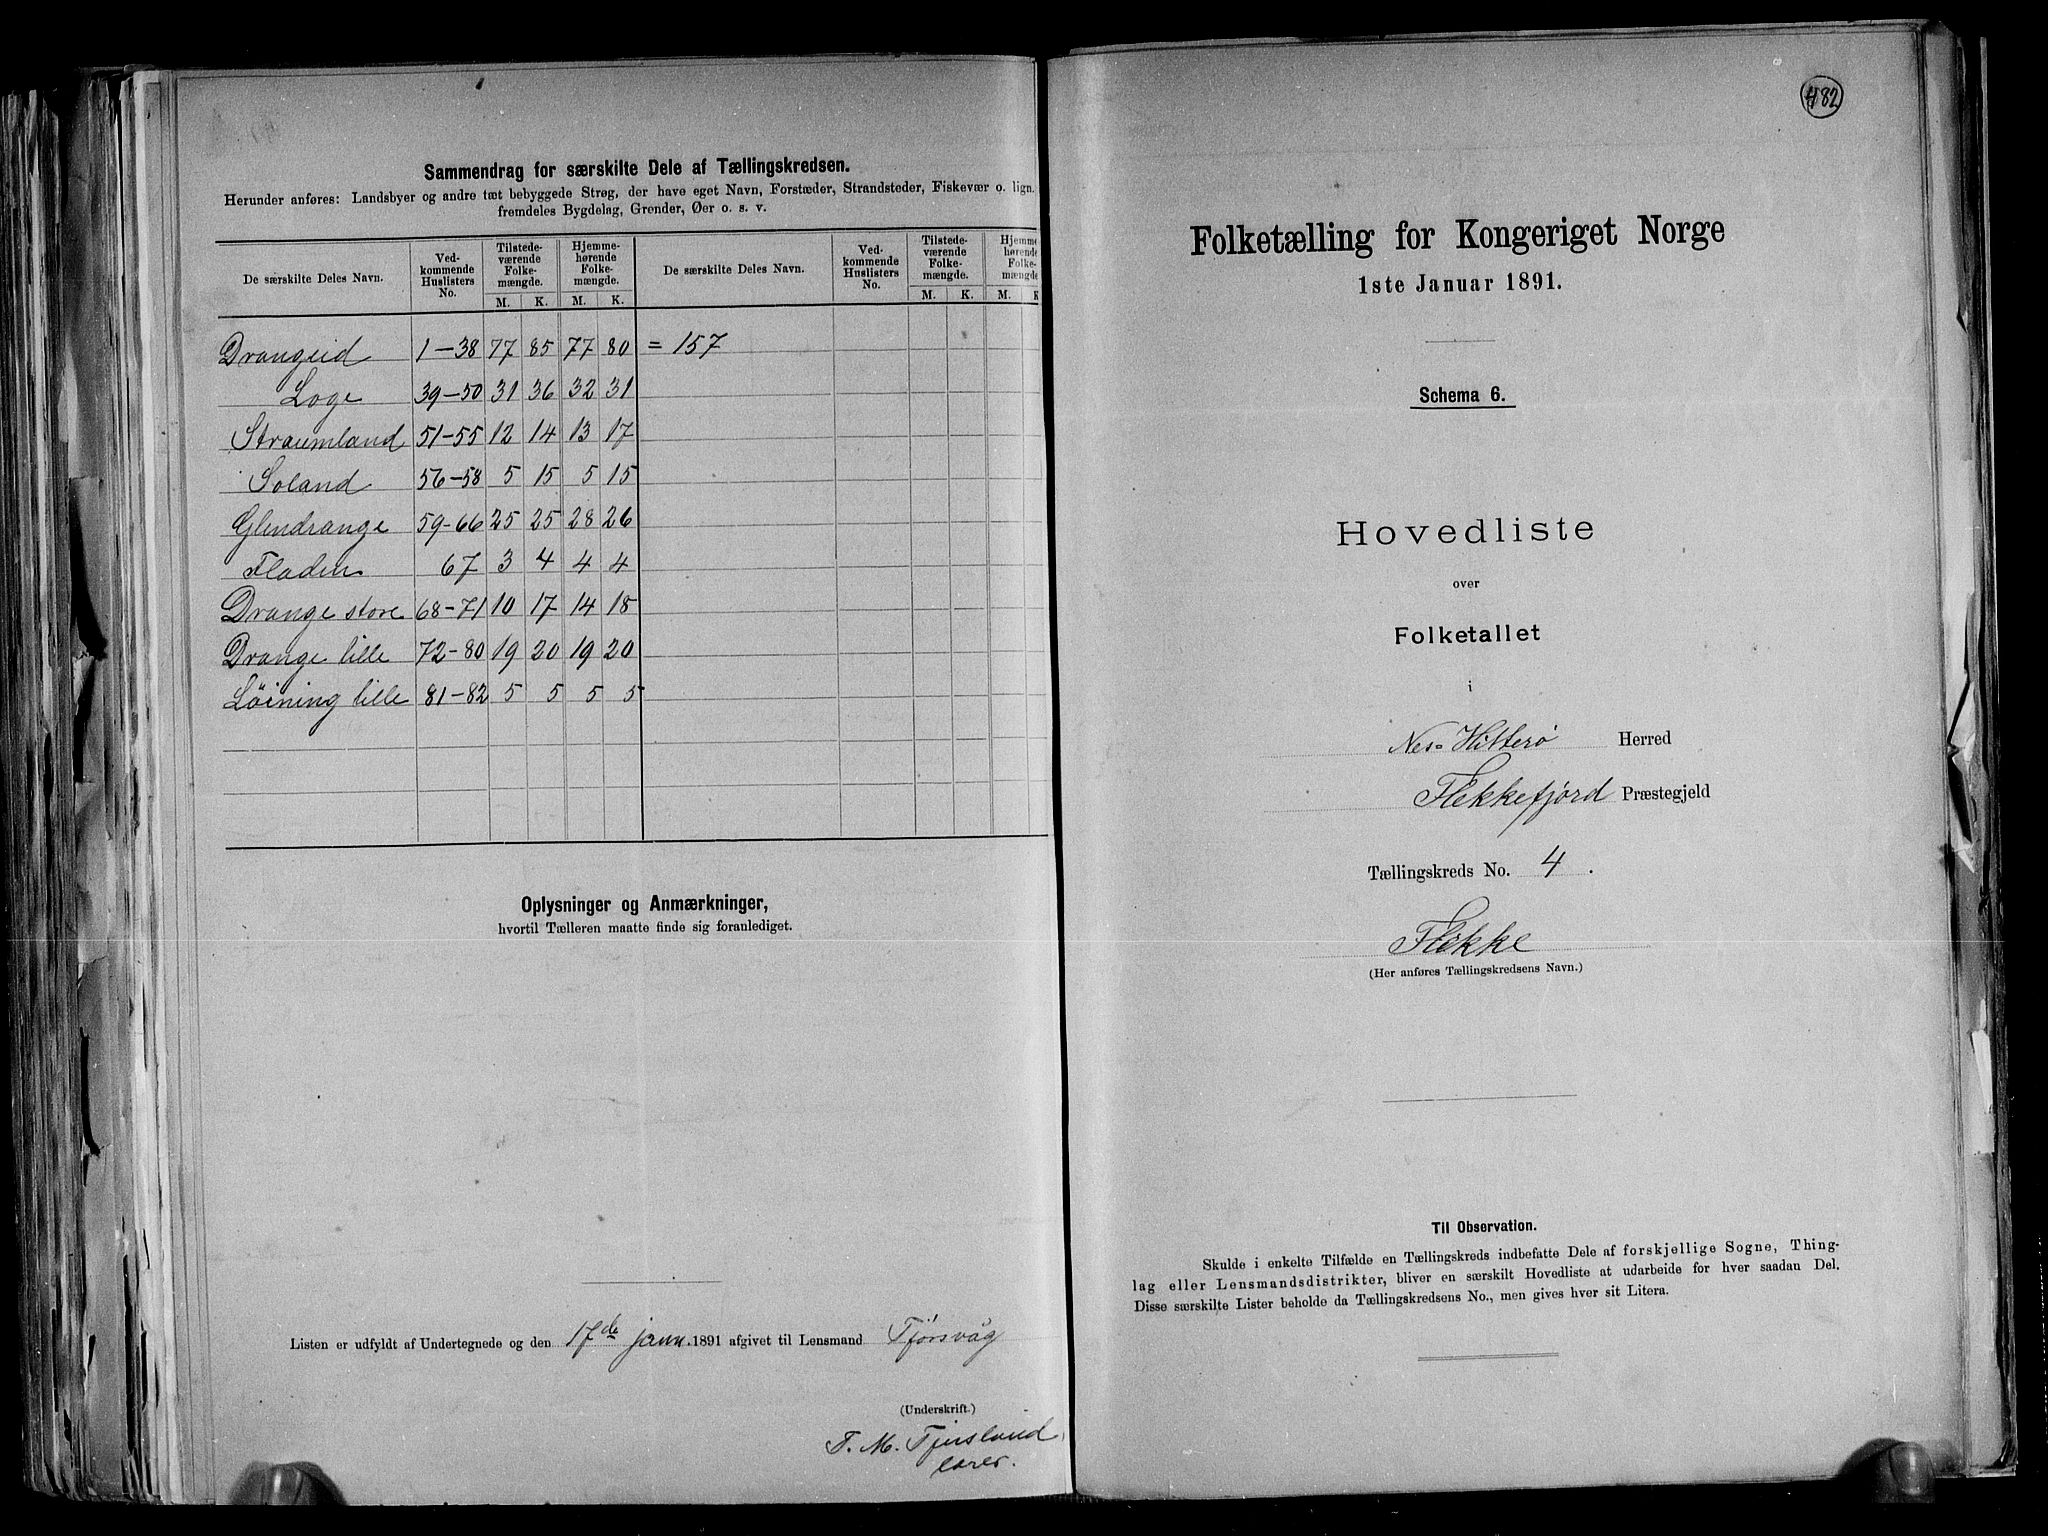 Sammendrag for særskilte Dele af Tællingskredsen.
Herunder anføres: Landsbyer og andre tæt bebyggede Strøg, der have eget Navn, Forstæder, Strandsteder, Fiskevær o. lign.
fremdeles Bygdelag, Grender, Øer o. s. v.
De særskilte Deles Navn. Ved-kommende Huslisters No. Tilstede-værende Folke-mængde. Hjemme-hørende Folke-mængde. De særskilte Deles Navn. Ved-kommende Huslisters No. Tilstede-værende Folke-mængde. Hjemme-hørende Folke-mængde
M. K. M. K. M. K. M. K
Drangeid 1-38 77 85 77 80 = 157
Loge 39-50 31 36 32 31
Straumland 51-55 12 14 13 17
Soland 56-58 5 15 5 15
Glendrange 59-66 25 25 28 26
Fladen 67 3 4 4 4
Drange store 68-71 10 17 14 18
Drange lille 72-80 19 20 19 20
Løining lille 81-82 5 5 5 5
Oplysninger og Anmærkninger,
hvortil Tælleren maatte finde sig foranlediget.
Listen er udfyldt af Undertegnede og den 17de jann. 1891 afgivet til Lensmand Tjørsvåg
(Underskrift.)
T. M. Tjørsland
lærer.
482
Folketælling for Kongeriget Norge
1ste Januar 1891.
Schema 6.
Hovedliste
over
Folketallet
i
Nes-Hitterø Herred
Flekkefjord Præstegjeld
Tællingskreds No. 4.
Flekke
(Her anføres Tællingskredsens Navn.)
Til Observation.
Skulde i enkelte Tilfælde en Tællingskreds indbefatte Dele af forskjellige Sogne, Thing-
lag eller Lensmandsdistrikter, bliver en særskilt Hovedliste at udarbeide for hver saadan Del.
Disse særskilte Lister beholde da Tællingskredsens No., men gives hver sit Litera.